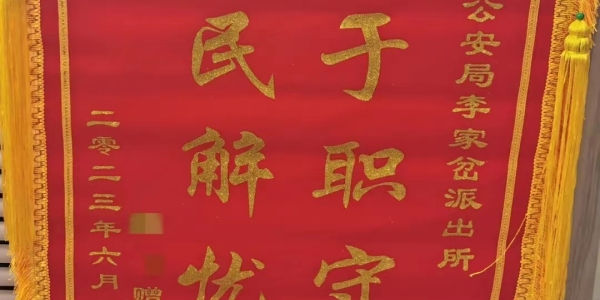 公安局李家岔派出所
于职守
民解忧
赠
二零二三年六月